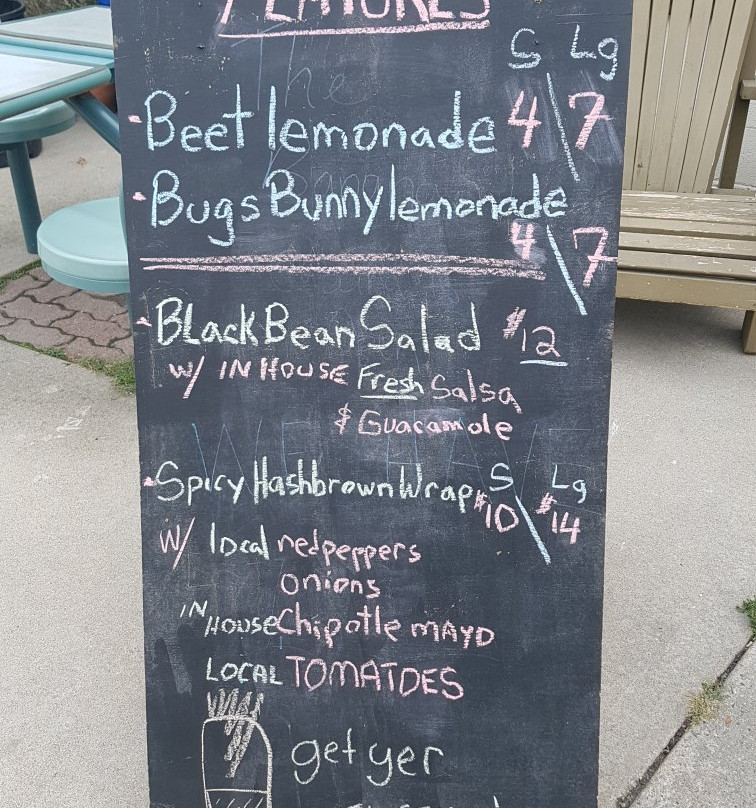 FEATURES
S Lg
Beet lemonade 4\7
Bugs Bunny lemonade
4\7
Black Bean Salad $12
w/ IN HOUSE Fresh Salsa
& Guacamole
Spicy Hashbrown Wrap S Lg
$10 \ $14
w/ local red peppers
onions
IN HOUSE Chipotle MAYO
LOCAL TOMATOES
get yer